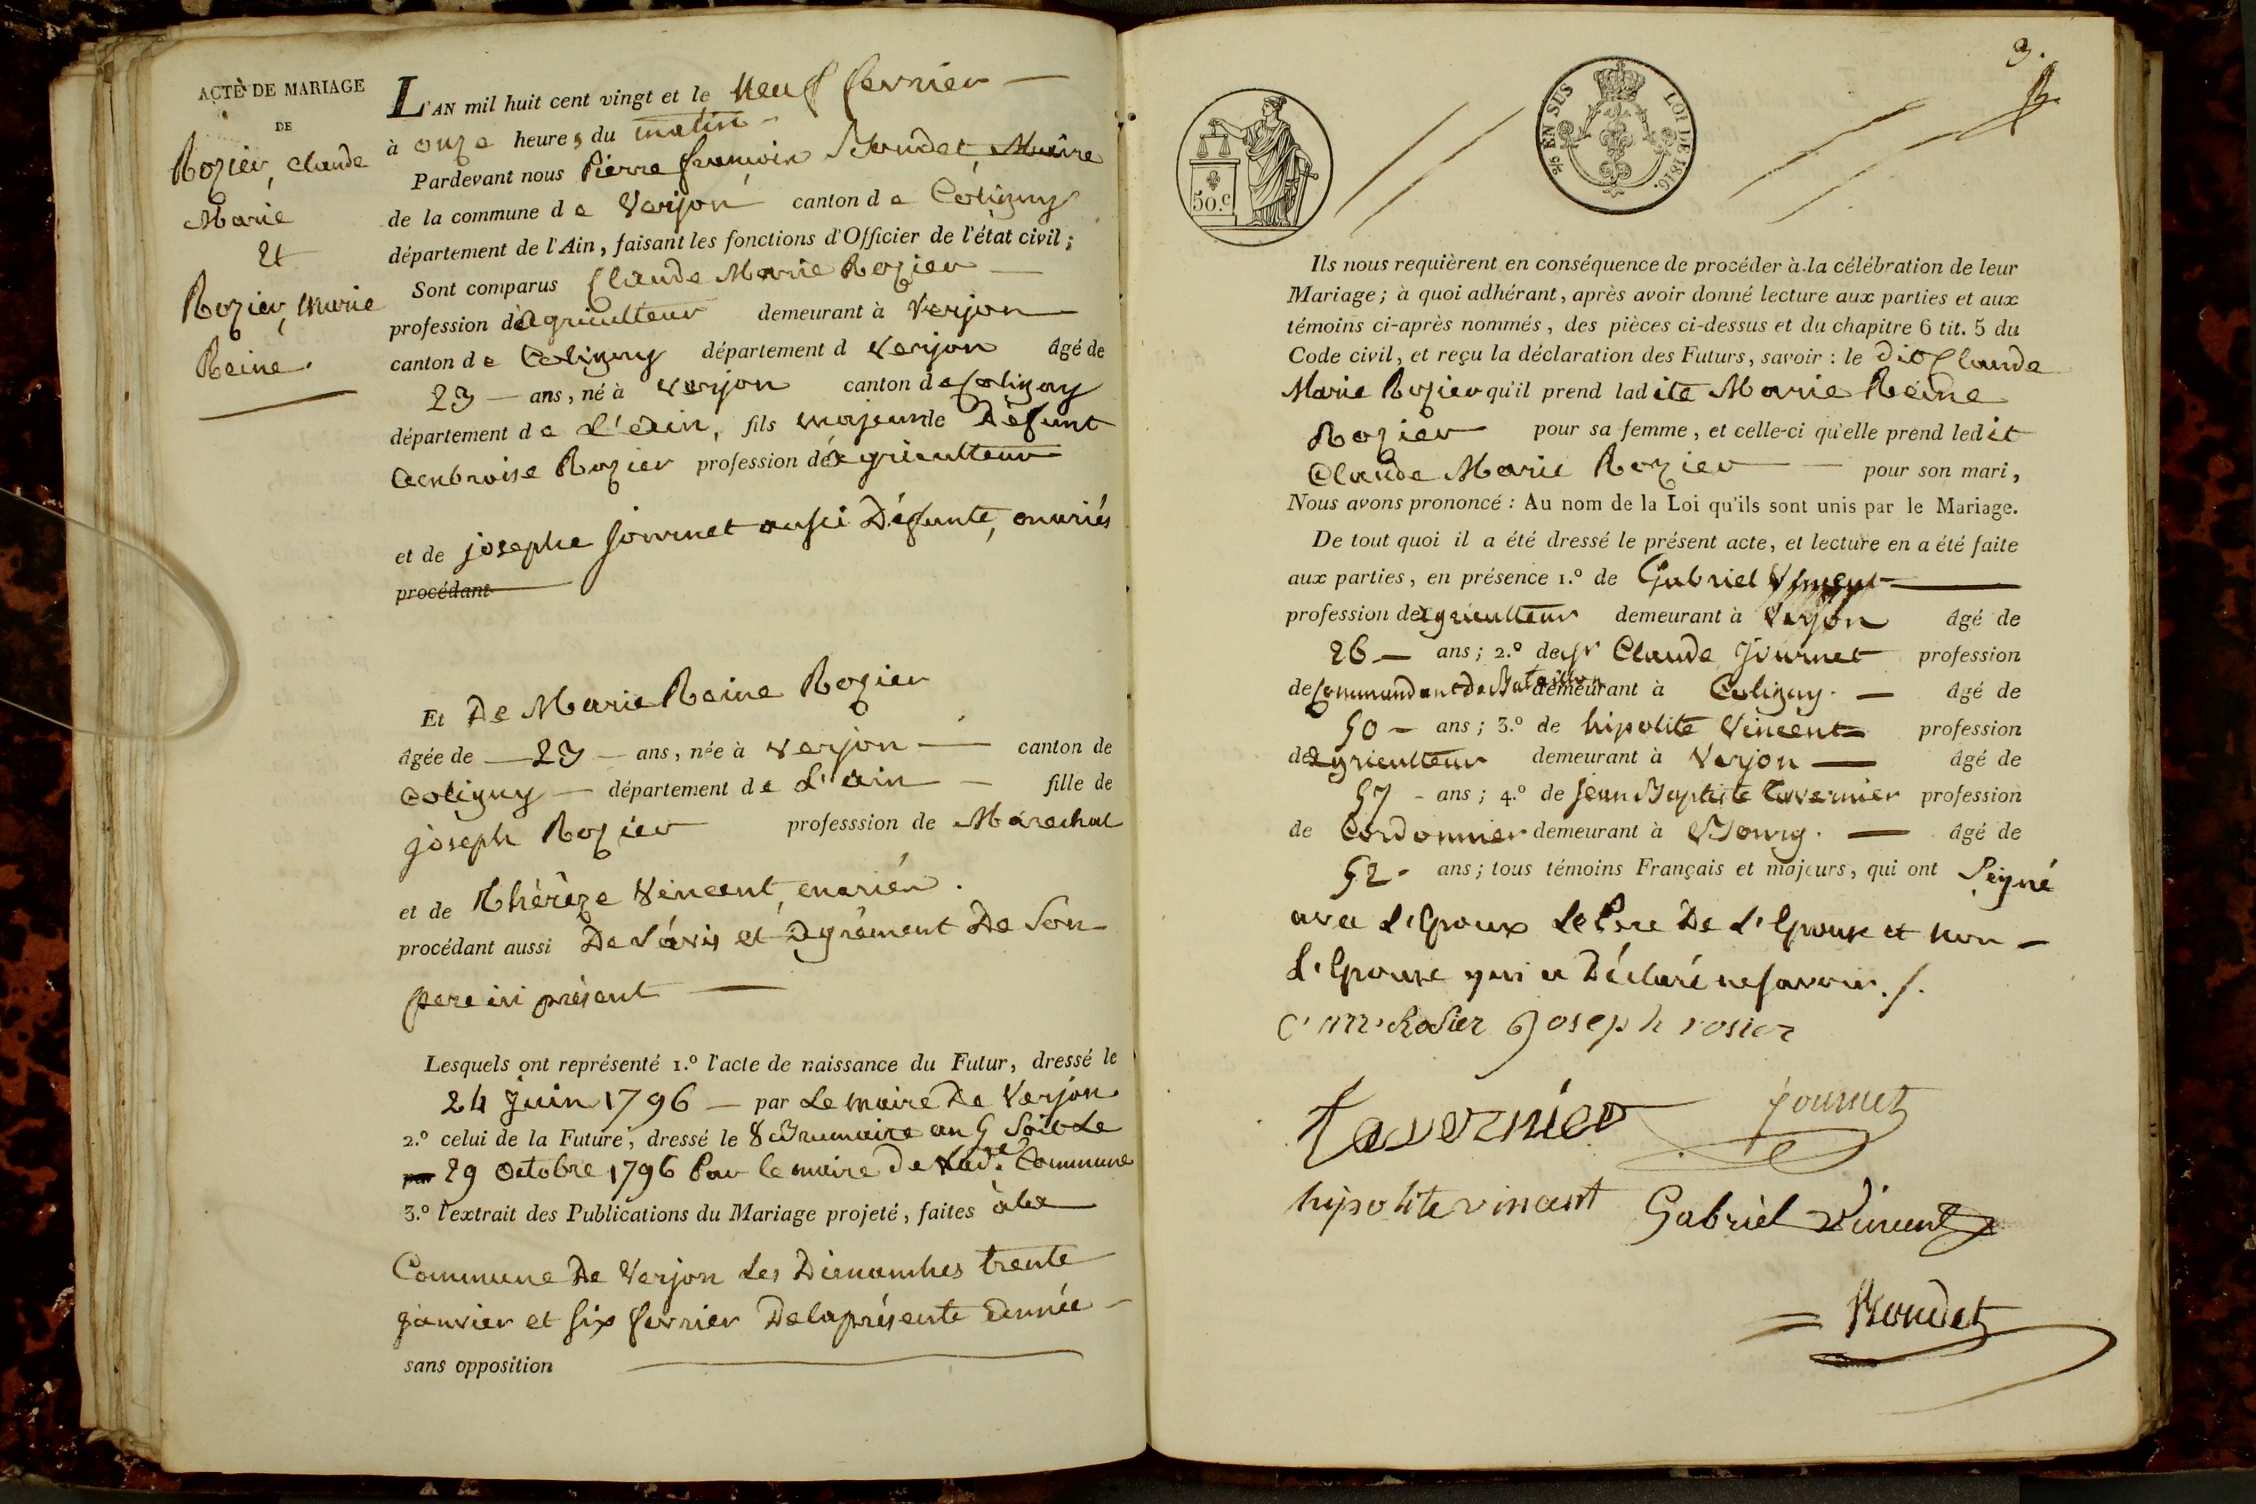 ACTE DE MARIAGE
DE
Rozier, Claude
Marie
Et
Rozier, Marie
Reine.
L'AN mil huit cent vingt et le Neuf fevrier
à onze heures du matin
Pardevant nous Pierre françois Boudet, Maire
de la commune de Verjon canton de Coligny
département de l'Ain, faisant les fonctions d'Officier de l'état civil;
Sont comparus Claude Marie Rozier
profession d'agriculteur demeurant à Verjon
canton de Coligny département d Verjon âgé de
23 ans, né à Verjon canton de Coligny
département de L'ain, fils majeur de Défunt
Ambroise Rozier profession d'agriculteur
et de josephe journet aussi Défunte, mariés
procédant
Et De Marie Reine Rozier
âgée de 23 ans, née à Verjon canton de
Coligny département de L'ain fille de
joseph Rozier professsion de Maréchal
et de Thérèze Vincent, mariés.
procédant aussi De l'avis et Agrément De Son
pere ici présent
Lesquels ont représenté 1.º l'acte de naissance du Futur, dressé le
24 juin 1796 par Le maire De Verjon
2.º celui de la Future, dressé le 8 Brumaire an 5 Soit Le
par 29 octobre 1796 Par le maire de lad.e Commune
3.º l'extrait des Publications du Mariage projeté, faites à la
Commune De Verjon Les Dimanches trente
janvier et six fevrier De la présente Année
sans opposition
3.
50.c
EN SUS LOI DE 1816.
Ils nous requièrent en conséquence de procéder à la célébration de leur
Mariage; à quoi adhérant, après avoir donné lecture aux parties et aux
témoins ci-après nommés, des pièces ci-dessus et du chapitre 6 tit. 5 du
Code civil, et reçu la déclaration des Futurs, savoir: le dit Claude
Marie Rozier qu'il prend ladite Marie Reine
Rozier pour sa femme, et celle-ci qu'elle prend ledit
Claude Marie Rozier pour son mari,
Nous avons prononcé: Au nom de la Loi qu'ils sont unis par le Mariage.
De tout quoi il a été dressé le présent acte, et lecture en a été faite
aux parties, en présence 1.º de Gabriel Vincent
profession de agriculteur demeurant à Verjon âgé de
26 ans; 2.º de Sr Claude Journet profession
de Commandant de Bataillon demeurant à Coligny. âgé de
50 ans; 3.º de hipolite Vincent profession
de agriculteur demeurant à Verjon âgé de
57 ans; 4.º de Jean Baptiste Tavernier profession
de Cordonnier demeurant à Bourg. âgé de
52 ans; tous témoins Français et majeurs, qui ont Signé
avec L'Epoux Le Pere De L'Epouse et non
L'Epouse qui a Déclaré ne savoir./.
C. m. Rosier Joseph rosier
Tavernier journet
hipolite vincent Gabriel Vincent
Boudet